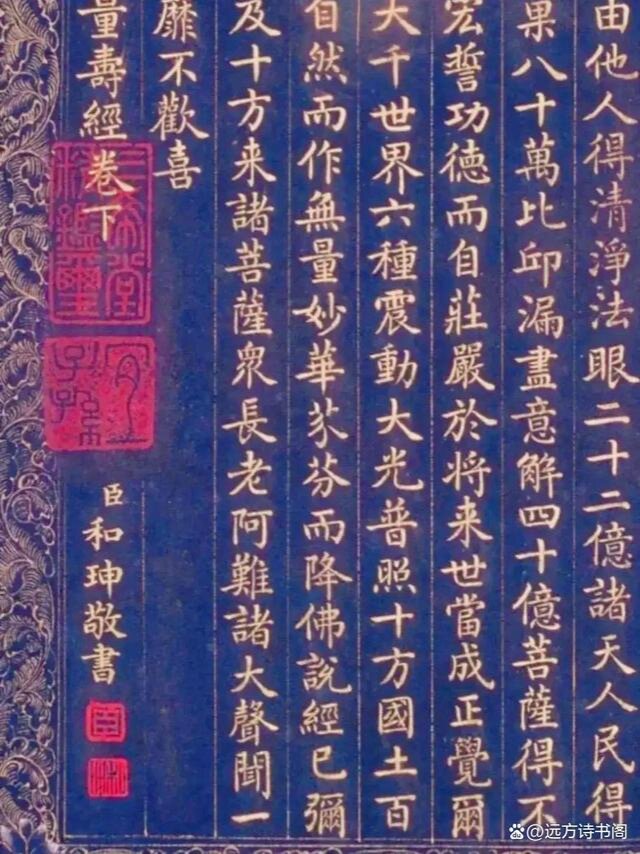 由他人得清淨法眼二十二億諸天人民得
果八十萬比邱漏盡意解四十億菩薩得不
宏誓功德而自莊嚴於将来世當成正覺爾
大千世界六種震動大光普照十方國土百
自然而作無量妙華芬而降佛說經已彌
及十方来諸菩薩衆長老阿難諸大聲聞一
靡不歡喜
量壽經卷下
三希堂精鑑璽
宜子孫
臣和珅敬書
臣
@远方诗书阁